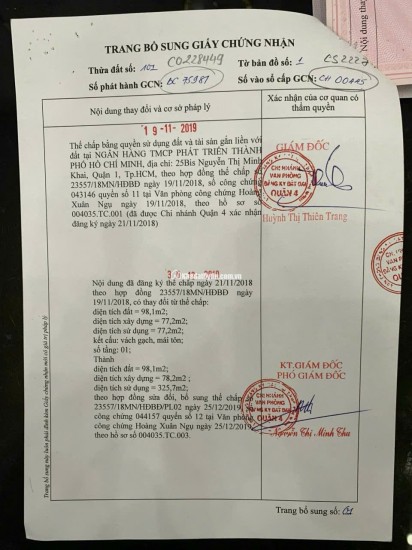 TRANG BỔ SUNG GIẤY CHỨNG NHẬN
CO228449
CS2227
Thửa đất số: 101 Tờ bản đồ số: 1
Số phát hành GCN: BC 75981 Số vào sổ cấp GCN: CH 00445
Nội dung thay đổi và cơ sở pháp lý
Xác nhận của cơ quan có
thẩm quyền
19-11-2019
Thế chấp bằng quyền sử dụng đất và tài sản gắn liền với
đất tại NGÂN HÀNG TMCP PHÁT TRIỂN THÀNH
PHỐ HỒ CHÍ MINH, địa chỉ: 25Bis Nguyễn Thị Minh
Khai, Quận 1, Tp.HCM, theo hợp đồng thế chấp số
23557/18MN/HĐBĐ ngày 19/11/2018, số công chứng
043146 quyển số 11 tại Văn phòng công chứng Hoàng
Xuân Ngụ ngày 19/11/2018, theo hồ sơ số
004035.TC.001 (đã được Chi nhánh Quận 4 xác nhận
đăng ký ngày 21/11/2018)
GIÁM ĐỐC
CHI NHÁNH
VĂN PHÒNG
ĐĂNG KÝ ĐẤT ĐAI
QUẬN 4
Huỳnh Thị Thiên Trang
12-2019
Nội dung đã đăng ký thế chấp ngày 21/11/2018
theo hợp đồng 23557/18MN/HĐBĐ ngày
19/11/2018, có thay đổi từ thế chấp:
diện tích đất = 98,1m2;
diện tích xây dựng = 77,2m2;
diện tích sử dụng = 77,2m2;
kết cấu: vách gạch, mái tôn;
số tầng: 01;
Thành
diện tích đất = 98,1m2;
diện tích xây dựng = 78,2m2 ;
diện tích sử dụng = 325,7m2;
theo hợp đồng sửa đổi, bổ sung thế chấp
23557/18MN/HĐBĐ/PL02 ngày 25/12/2019,
công chứng 044157 quyển số 12 tại Văn phòng
công chứng Hoàng Xuân Ngụ ngày 25/12/2019
theo hồ sơ số 004035.TC.003.
KT.GIÁM ĐỐC
PHÓ GIÁM ĐỐC
CHI NHÁNH
VĂN PHÒNG
ĐĂNG KÝ ĐẤT ĐAI
QUẬN 4
Nguyễn Thị Minh Thu
Trang bổ sung này luôn phải đính kèm Giấy chứng nhận mới có giá trị pháp lý
Trang bổ sung số: 01